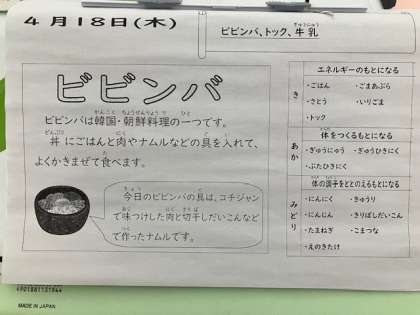 4月18日(木)
ビビンバ、トック、牛乳
ぎゅうにゅう
ビビンバ
ビビンバは韓国・朝鮮料理の一つです。
かんこく ちょうせんりょうり ひと
丼にごはんと肉やナムルなどの具を入れて、
どんぶり にく ぐ い
よくかきまぜて食べます。
た
今日のビビンバの具は、コチジャン
きょう ぐ
で味つけした肉と切干しだいこんなど
あじ にく きりぼ
で作ったナムルです。
つく
き
エネルギーのもとになる
・ごはん ・ごまあぶら
・さとう ・いりごま
・トック
あか
体をつくるもとになる
からだ
・ぎゅうにゅう ・ぎゅうひきにく
・ぶたひきにく
みどり
体の調子をととのえるもとになる
からだ ちょうし
・にんにく ・きゅうり
・にんじん ・きりぼしだいこん
・たまねぎ ・こまつな
・えのきたけ
MADE IN JAPAN